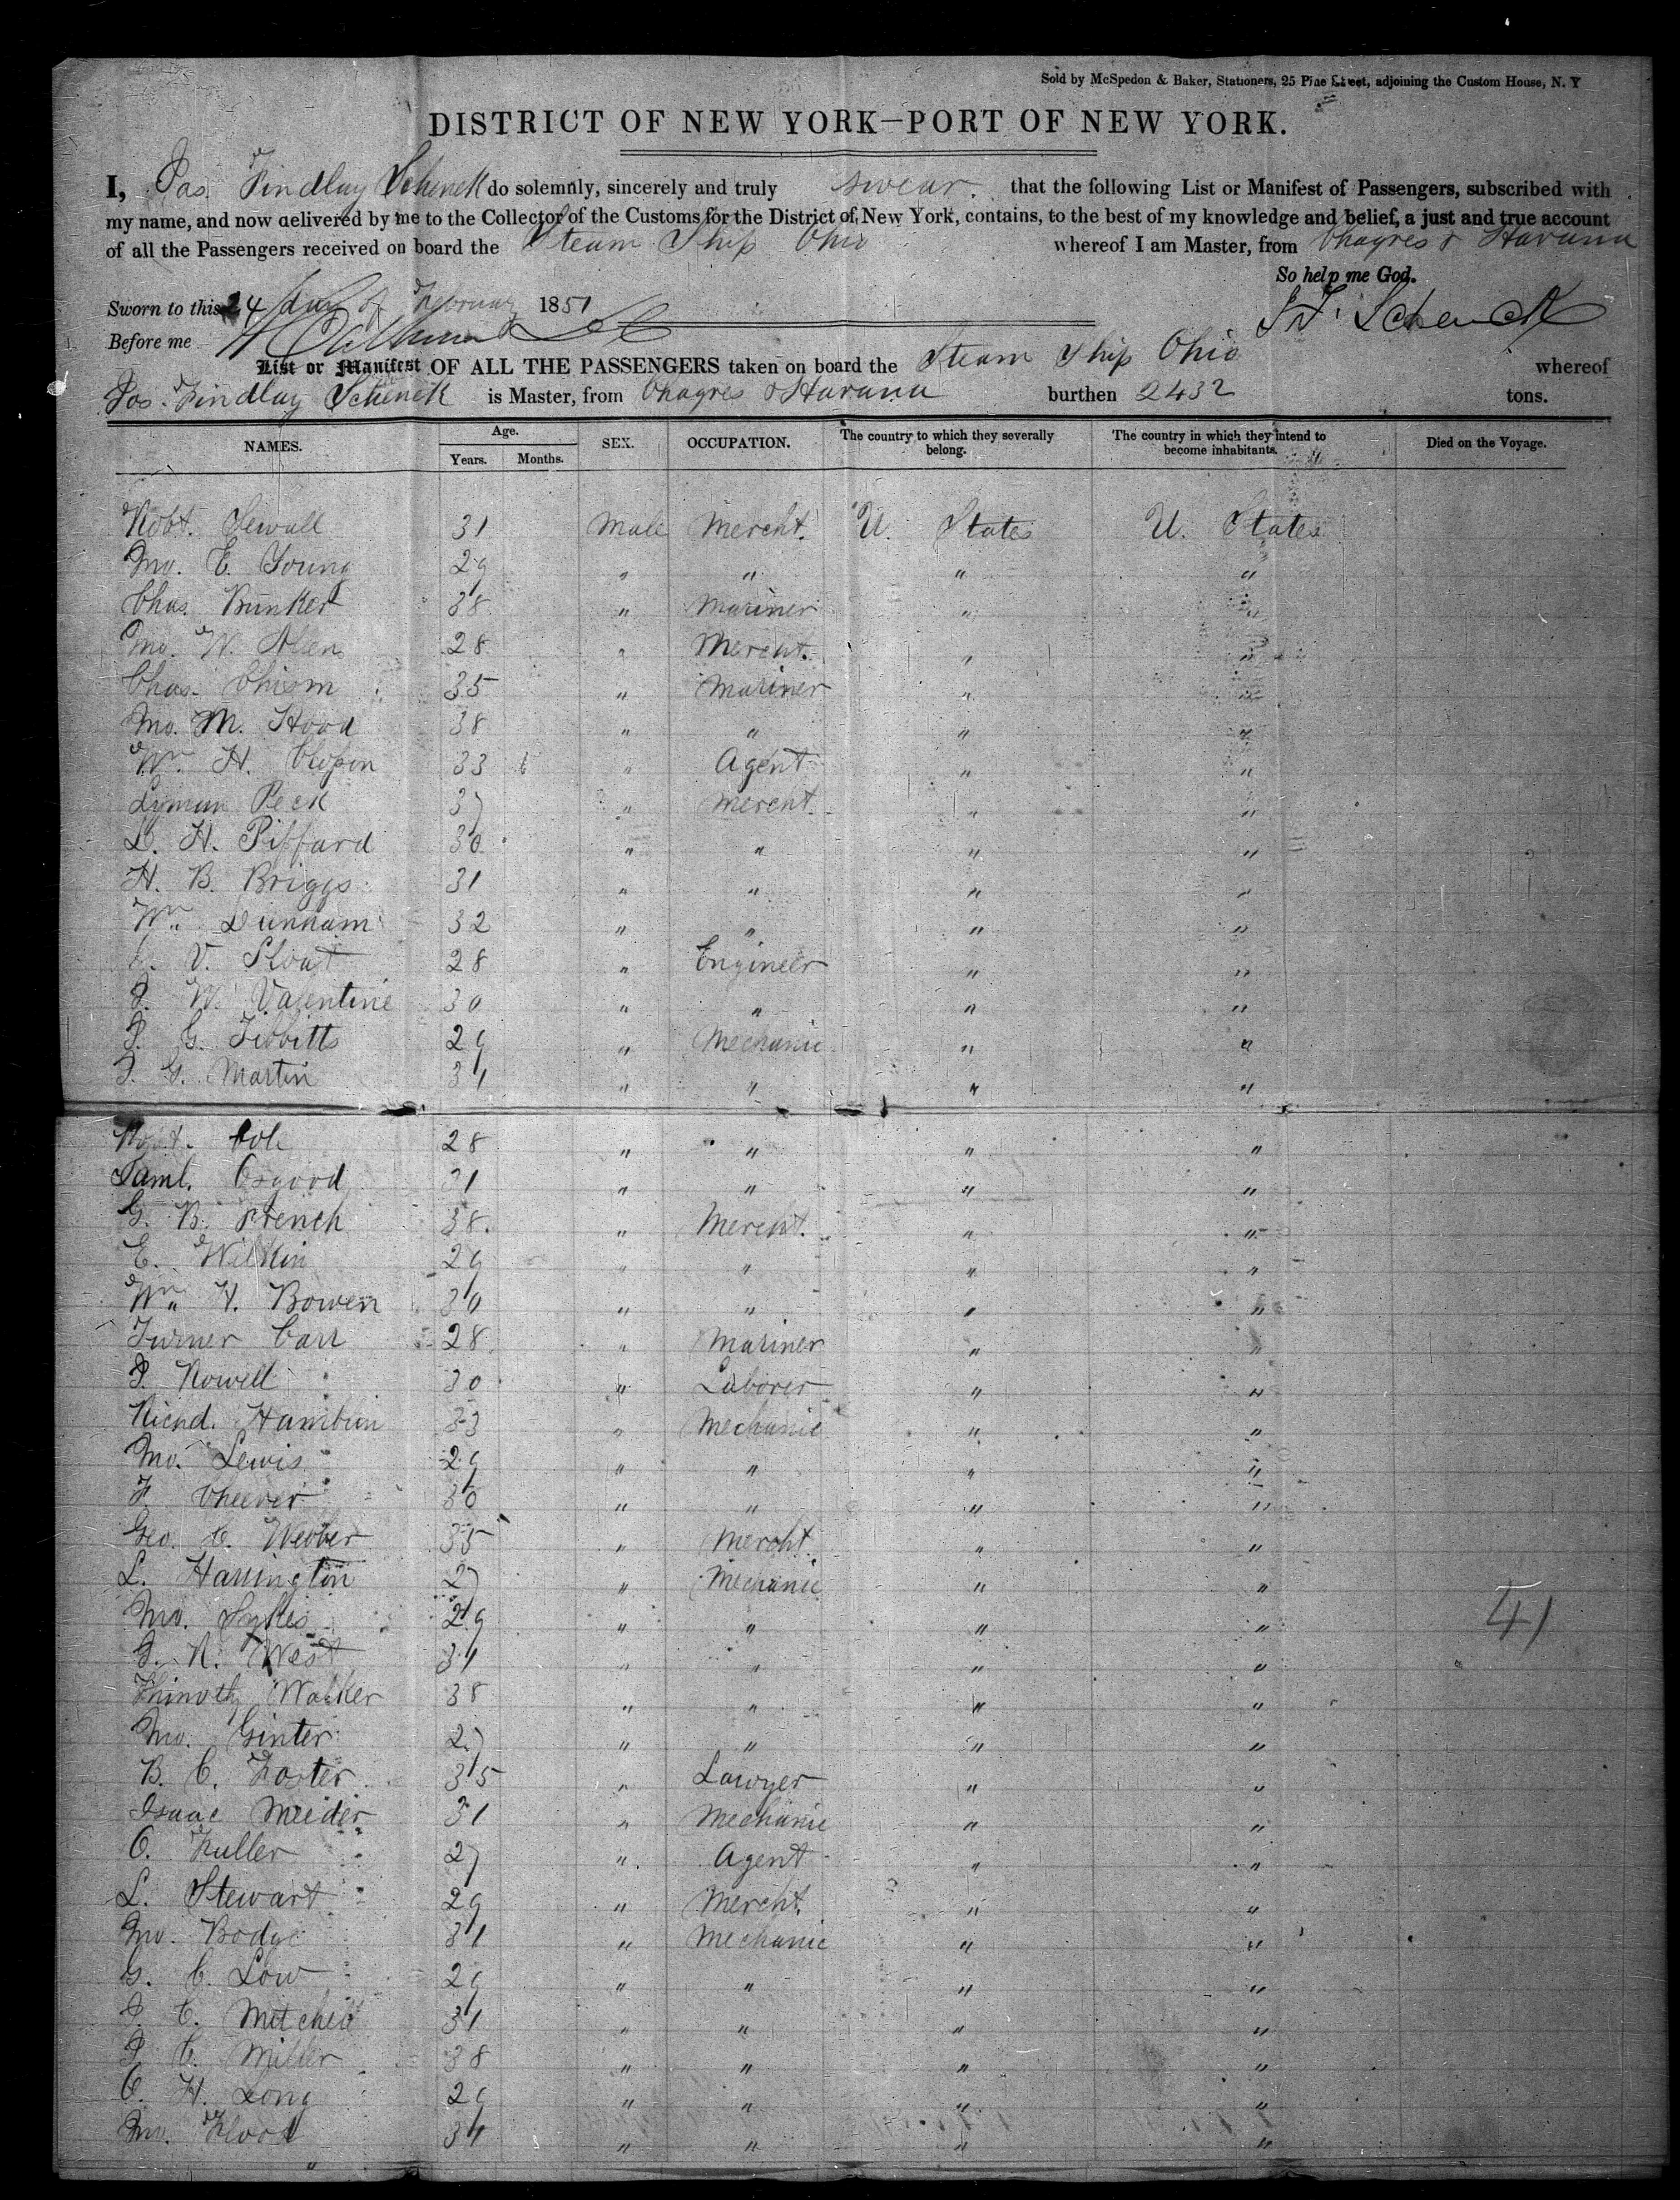 Sold by McSpedon & Baker, Stationers, 25 Pine Street, adjoining the Custom House, N. Y
DISTRICT OF NEW YORK—PORT OF NEW YORK.
I, Jas. Findlay Schenck do solemnly, sincerely and truly swear that the following List or Manifest of Passengers, subscribed with
my name, and now delivered by me to the Collector of the Customs for the District of New York, contains, to the best of my knowledge and belief, a just and true account
of all the Passengers received on board the Steam Ship Ohio whereof I am Master, from Chagres & Havana
So help me God.
Sworn to this 24 day of February 1851 J F Schenck
Before me
List or Manifest OF ALL THE PASSENGERS taken on board the Steam Ship Ohio whereof
Jas. Findlay Schenck is Master, from Chagres & Havana burthen 2432 tons.
NAMES. Age. Years. Months. SEX. OCCUPATION. The country to which they severally belong. The country in which they intend to become inhabitants. Died on the Voyage.
Robt. Sewall 31 Male Mercht. U. States U. States
Jno. E. Young 29 " " " "
Chas. Bunker 38 " Mariner " "
Jno. W. Allen 28 " Mercht. " "
Chas. Chism 35 " Mariner " "
Jno. M. Hood 38 " " " "
Wm. H. 33 " Agent " "
Lyman Peck 37 " Mercht. " "
D. H. Piffard 30 " " " "
H. B. Briggs 31 " " " "
Wm. Dunham 32 " " " "
V. Sloat 28 " Engineer " "
J. W. Valentine 30 " " " "
J. G. Tibbitts 29 " Mechanic " "
J. G. Martin 31 " " " "
Robt. Cole 28 " " " "
Saml. Osgood 31 " " " "
G. B. French 38. " Mercht. " "
E. Wilkin 29 " " " "
Wm. H. Bowen 30 " " " "
Turner Carr 28 " Mariner " "
J. Nowell 30 " Laborer " "
Richd. Hamblin 33 " Mechanic " "
Jno. Lewis 29 " " " "
F. Cheever 30 " " " "
Geo. C. Webber 35 " Mercht " "
L. Harrington 27 " Mechanic " "
Jno. Sykes 29 " " " " 41
J. R. West 31 " " " "
Thimothy Walker 38 " " " "
Jno. Ginter 27 " " " "
B. C. Foster 35 " Lawyer " "
Isaac Meider 31 " Mechanic " "
O. Fuller 27 " Agent " "
L. Stewart 29 " Mercht. " "
Jno. Bodge 31 " Mechanic " "
G. C. Low 29 " " " "
J. C. Mitchell 31 " " " "
J. C. Miller 38 " " " "
O. H. Long 29 " " " "
Jno. Flood 31 " " " "